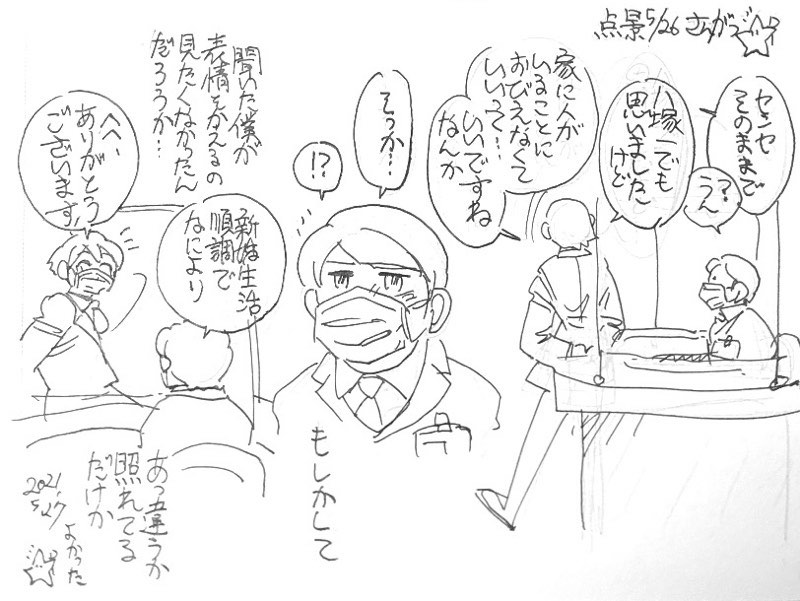 点景5/26 さんがつ
センセ
そのままで
?
うん
八塚一でも
思いました
けど
家に人が
いることに
おびえなくて
いいって…
いいですね
なんか
そっか…
!?
もしかして
聞いた僕が
表情をかえるの
見たくなかったん
だろうか…
へへ、
ありがとう
ございます
新婚生活
順調で
なにより
あっ違うか
照れてる
だけか
よかった
2021.
5.27